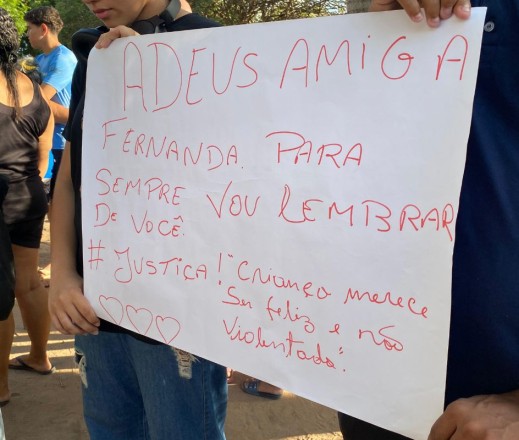 ADEUS AMIGA
FERNANDA. PARA
SEMPRE VOU LEMBRAR
DE VOCÊ.
# JUSTIÇA! "Criança merece
Ser feliz e não
Violentada".